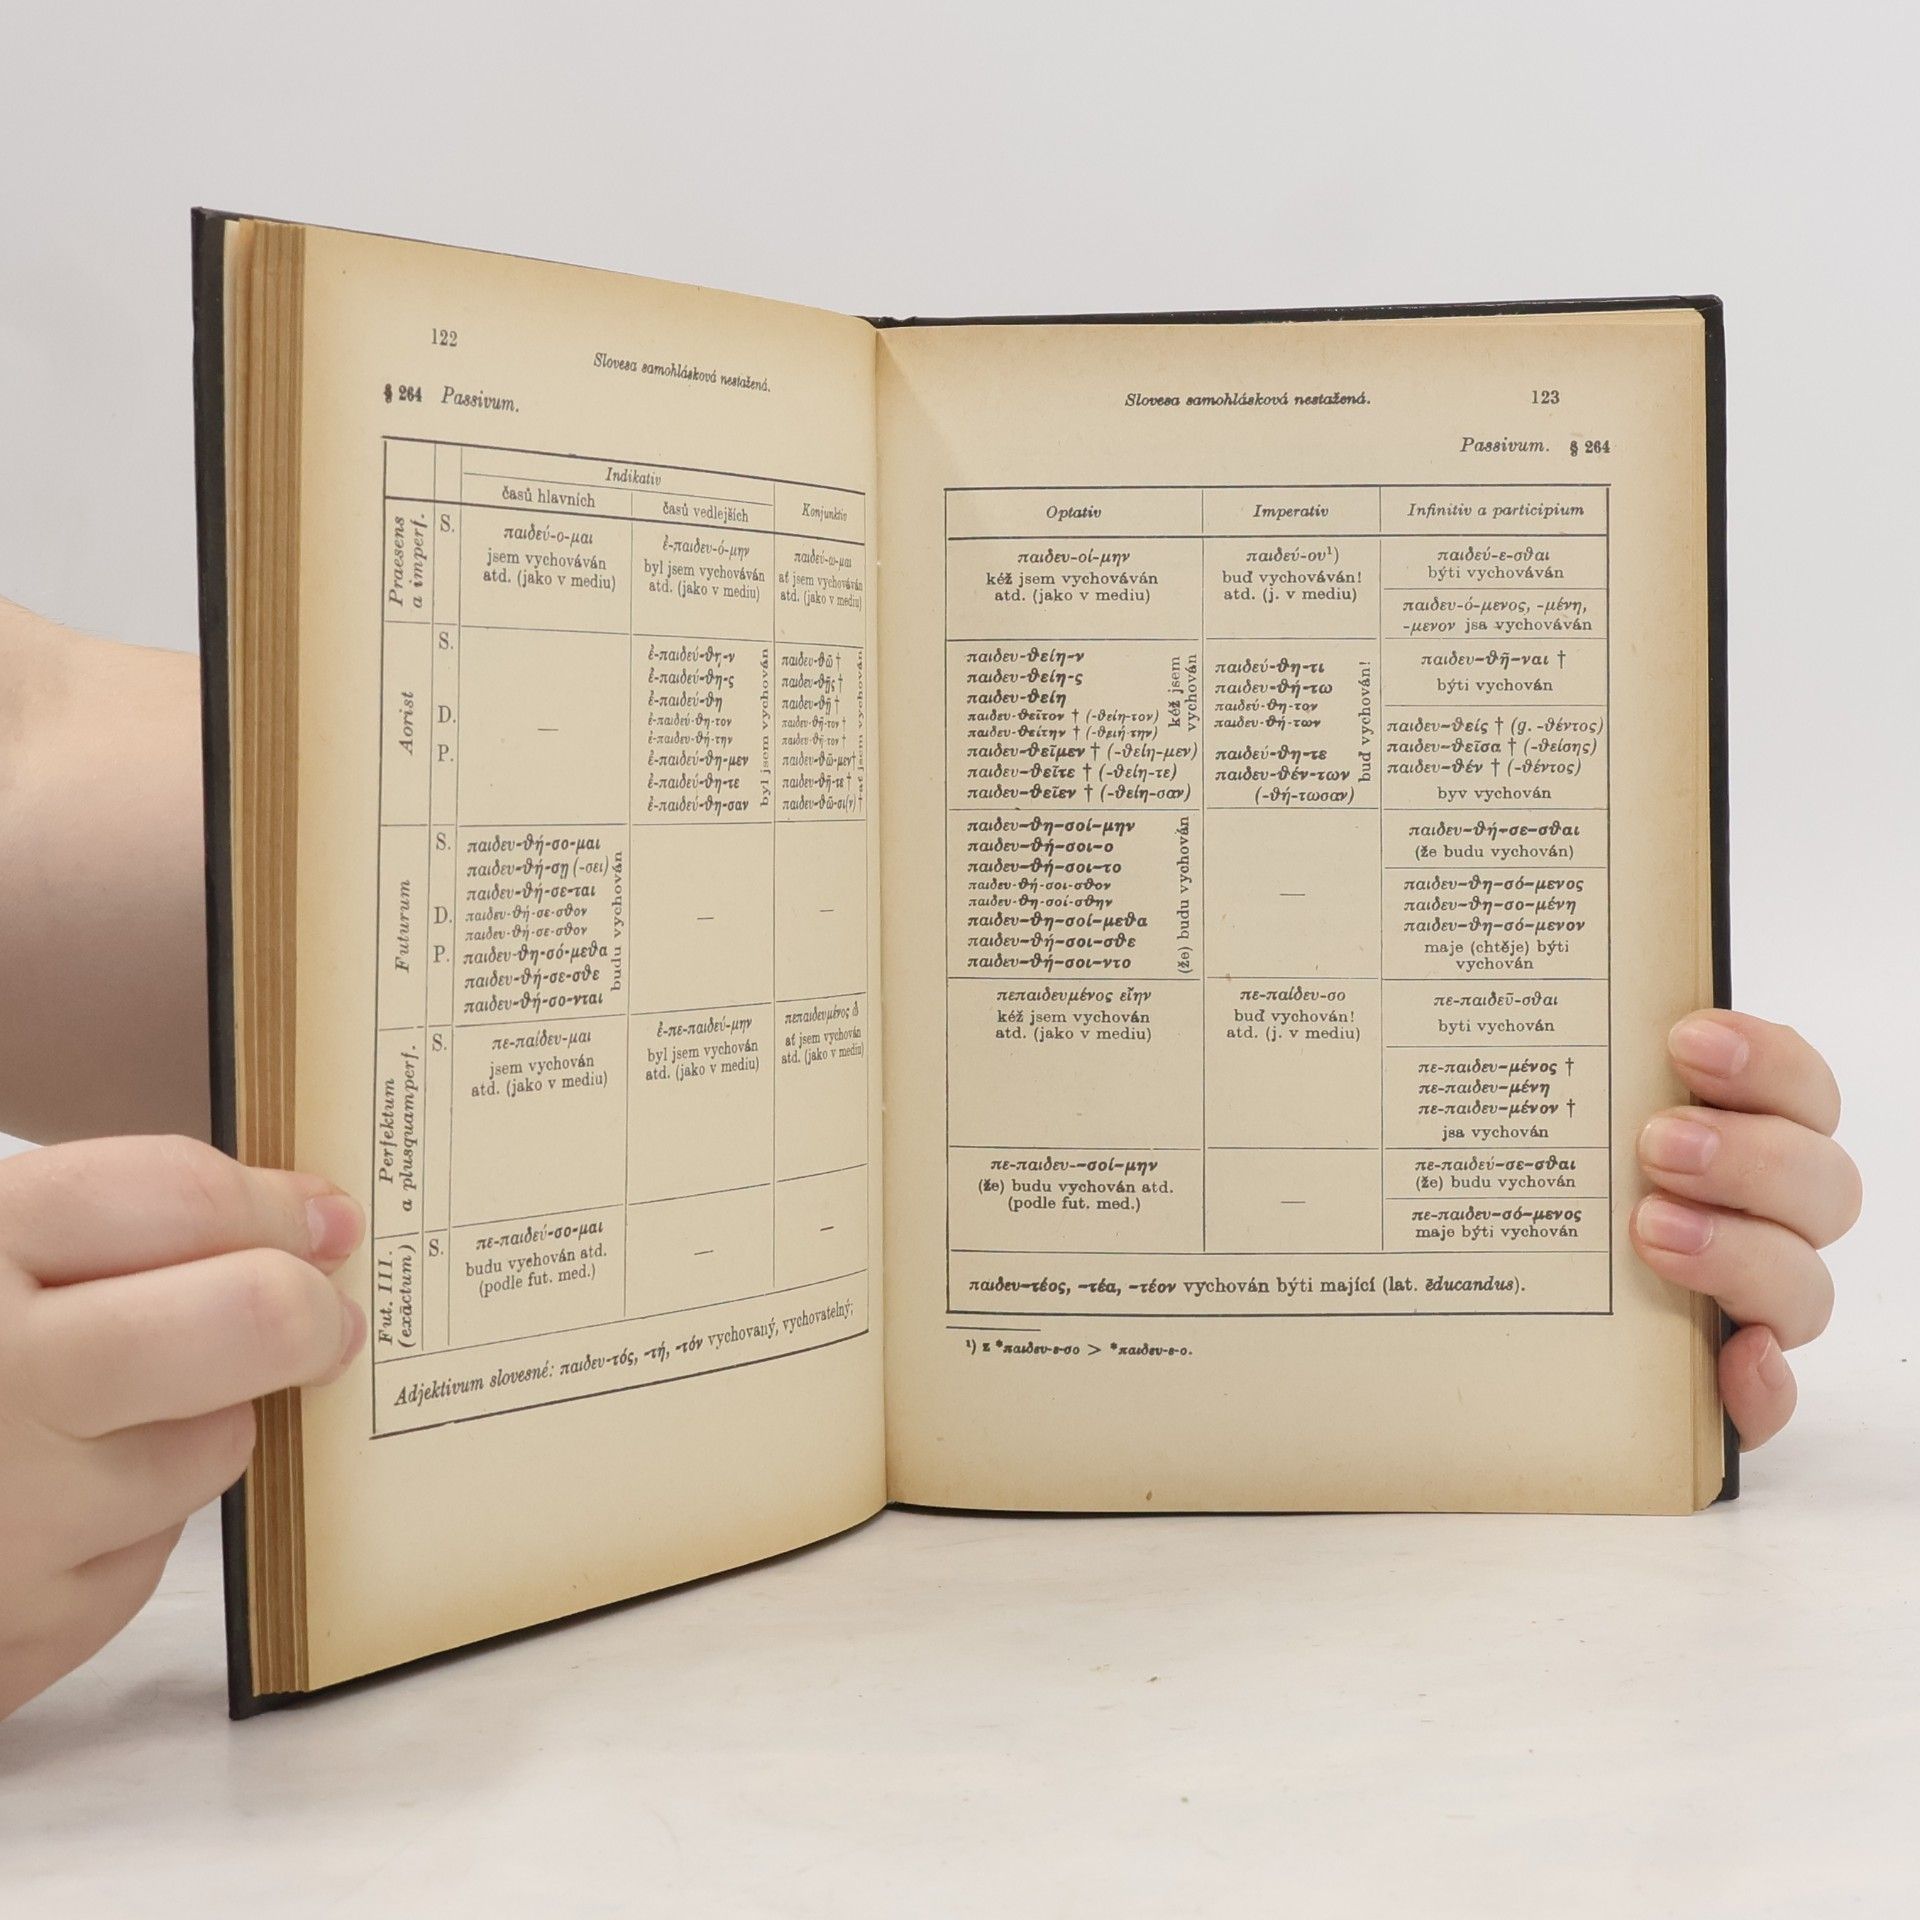 122
Slovesa samohlásková nestažená.
§ 264 Passivum.
Indikativ
časů hlavních
časů vedlejších
Konjunktiv
Praesens
a imperf.
S.
παιδεύ-ο-μαι
jsem vychováván
atd. (jako v mediu)
ἐ-παιδευ-ό-μην
byl jsem vychováván
atd. (jako v mediu)
παιδεύ-ω-μαι
ať jsem vychováván
atd. (jako v mediu)
Aorist
S.
D.
P.
—
ἐ-παιδεύ-θη-ν
ἐ-παιδεύ-θη-ς
ἐ-παιδεύ-θη
ἐ-παιδεύ-θη-τον
ἐ-παιδευ-θή-την
ἐ-παιδεύ-θη-μεν
ἐ-παιδεύ-θη-τε
ἐ-παιδεύ-θη-σαν
byl jsem vychován
παιδευ-θῶ †
παιδευ-θῇς †
παιδευ-θῇ †
παιδευ-θῆ-τον †
παιδευ-θῆ-τον †
παιδευ-θῶ-μεν †
παιδευ-θῆ-τε †
παιδευ-θῶ-σι(ν) †
ať jsem vychován
Futurum
S.
D.
P.
παιδευ-θή-σο-μαι
παιδευ-θή-σῃ (-σει)
παιδευ-θή-σε-ται
παιδευ-θή-σε-σθον
παιδευ-θή-σε-σθον
παιδευ-θη-σό-μεθα
παιδευ-θή-σε-σθε
παιδευ-θή-σο-νται
budu vychován
—
—
Perfektum
a plusquamperf.
S.
πε-παίδευ-μαι
jsem vychován
atd. (jako v mediu)
ἐ-πε-παιδεύ-μην
byl jsem vychován
atd. (jako v mediu)
πεπαιδευμένος ὦ
ať jsem vychován
atd. (jako v mediu)
Fut. III.
(exāctum)
S.
πε-παιδεύ-σο-μαι
budu vychován atd.
(podle fut. med.)
—
—
Adjektivum slovesné: παιδευ-τός, -τή, -τόν vychovaný, vychovatelný;
Slovesa samohlásková nestažená.
123
Passivum. § 264
Optativ
Imperativ
Infinitiv a participium
παιδευ-οί-μην
kéž jsem vychováván
atd. (jako v mediu)
παιδεύ-ου¹)
buď vychováván!
atd. (j. v mediu)
παιδεύ-ε-σθαι
býti vychováván
παιδευ-ό-μενος, -μένη,
-μενον jsa vychováván
παιδευ-θείη-ν
παιδευ-θείη-ς
παιδευ-θείη
παιδευ-θεῖτον † (-θείη-τον)
παιδευ-θείτην † (-θειή-την)
παιδευ-θεῖμεν † (-θείη-μεν)
παιδευ-θεῖτε † (-θείη-τε)
παιδευ-θεῖεν † (-θείη-σαν)
kéž jsem
vychován
παιδεύ-θη-τι
παιδευ-θή-τω
παιδεύ-θη-τον
παιδευ-θή-των
παιδεύ-θη-τε
παιδευ-θέν-των
(-θή-τωσαν)
buď vychován!
παιδευ-θῆ-ναι †
býti vychován
παιδευ-θείς † (g. -θέντος)
παιδευ-θεῖσα † (-θείσης)
παιδευ-θέν † (-θέντος)
byv vychován
παιδευ-θη-σοί-μην
παιδευ-θή-σοι-ο
παιδευ-θή-σοι-το
παιδευ-θή-σοι-σθον
παιδευ-θη-σοί-σθην
παιδευ-θη-σοί-μεθα
παιδευ-θή-σοι-σθε
παιδευ-θή-σοι-ντο
(že) budu vychován
—
παιδευ-θή-σε-σθαι
(že budu vychován)
παιδευ-θη-σό-μενος
παιδευ-θη-σο-μένη
παιδευ-θη-σό-μενον
maje (chtěje) býti
vychován
πεπαιδευμένος εἴην
kéž jsem vychován
atd. (jako v mediu)
πε-παίδευ-σο
buď vychován!
atd. (j. v mediu)
πε-παιδεῦ-σθαι
byti vychován
πε-παιδευ-μένος †
πε-παιδευ-μένη
πε-παιδευ-μένον †
jsa vychován
πε-παιδευ-σοί-μην
(že) budu vychován atd.
(podle fut. med.)
—
πε-παιδεύ-σε-σθαι
(že) budu vychován
πε-παιδευ-σό-μενος
maje býti vychován
παιδευ-τέος, -τέα, -τέον vychován býti mající (lat. ēducandus).
¹) z *παιδευ-ε-σο > *παιδευ-ε-ο.